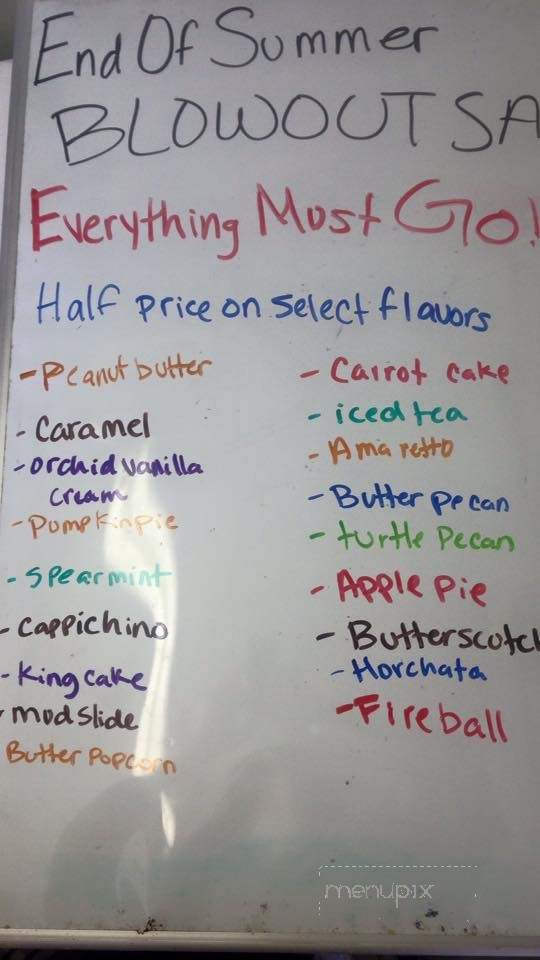 End Of Summer
BLOWOUT SA
Everything Must Go!
Half price on select flavors
- Peanut butter
- Caramel
- orchid vanilla
cream
- Pumpkin pie
- spearmint
- cappichino
- King cake
- mudslide
Butter Popcorn
- Carrot cake
- iced tea
- Amaretto
- Butter pecan
- turtle Pecan
- Apple Pie
- Butterscotch
- Horchata
- Fireball
menupix